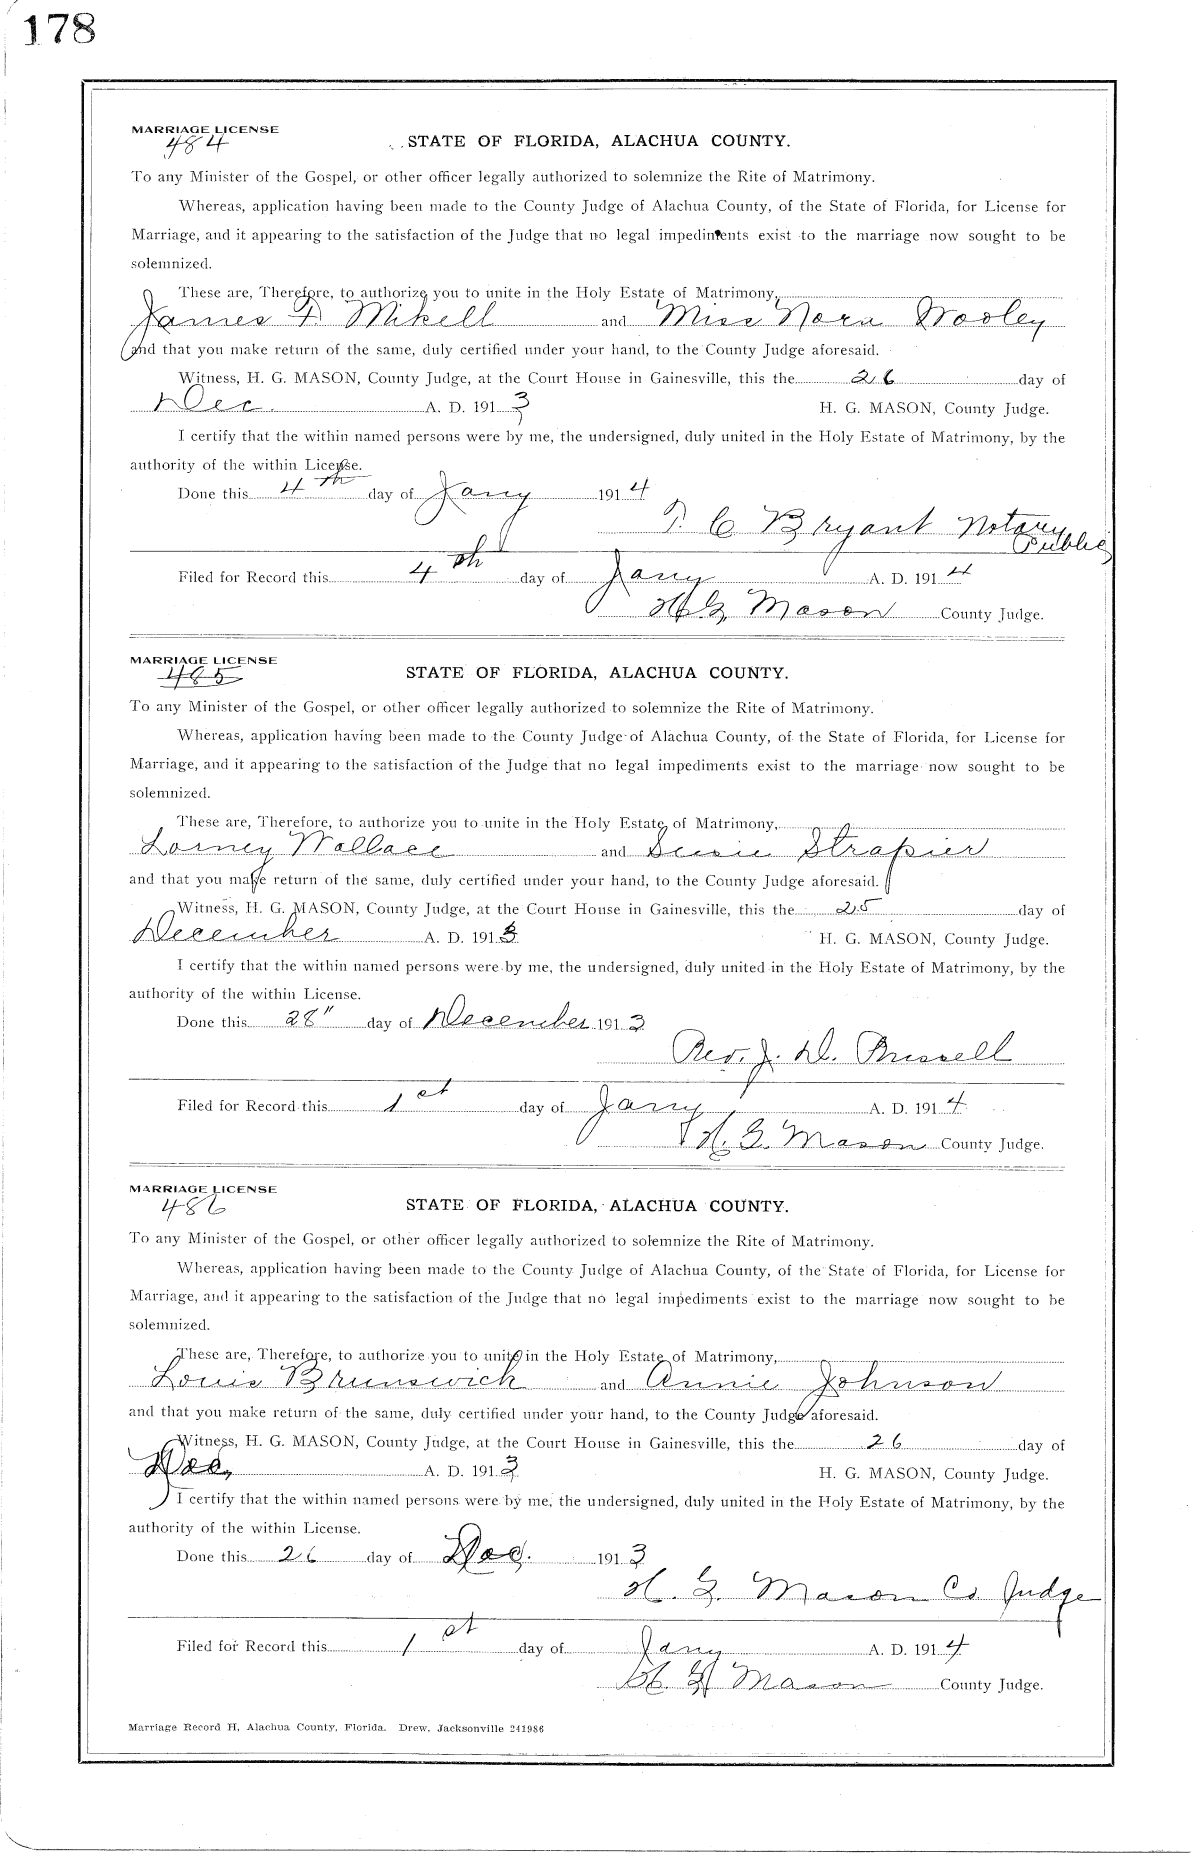 178
MARRIAGE LICENSE
484
STATE OF FLORIDA, ALACHUA COUNTY.
To any Minister of the Gospel, or other officer legally authorized to solemnize the Rite of Matrimony.
Whereas, application having been made to the County Judge of Alachua County, of the State of Florida, for License for
Marriage, and it appearing to the satisfaction of the Judge that no legal impediments exist to the marriage now sought to be
solemnized.
These are, Therefore, to authorize you to unite in the Holy Estate of Matrimony,
James F. Mikell and Miss Nora Wooley
and that you make return of the same, duly certified under your hand, to the County Judge aforesaid.
Witness, H. G. MASON, County Judge, at the Court House in Gainesville, this the 26 day of
Dec. A. D. 1913 H. G. MASON, County Judge.
I certify that the within named persons were by me, the undersigned, duly united in the Holy Estate of Matrimony, by the
authority of the within License.
Done this 4th day of Jany 1914
T. C Bryant Notary
Public
Filed for Record this 4th day of Jany A. D. 1914
H. G. Mason County Judge.
MARRIAGE LICENSE
485
STATE OF FLORIDA, ALACHUA COUNTY.
To any Minister of the Gospel, or other officer legally authorized to solemnize the Rite of Matrimony.
Whereas, application having been made to the County Judge of Alachua County, of the State of Florida, for License for
Marriage, and it appearing to the satisfaction of the Judge that no legal impediments exist to the marriage now sought to be
solemnized.
These are, Therefore, to authorize you to unite in the Holy Estate of Matrimony,
Lorney Wallace and Susie Strapier
and that you make return of the same, duly certified under your hand, to the County Judge aforesaid.
Witness, H. G. MASON, County Judge, at the Court House in Gainesville, this the 25 day of
December A. D. 1913 H. G. MASON, County Judge.
I certify that the within named persons were by me, the undersigned, duly united in the Holy Estate of Matrimony, by the
authority of the within License.
Done this 28" day of December 1913
Rev. J. D. Russell
Filed for Record this 1st day of Jany A. D. 1914
H. G. Mason County Judge.
MARRIAGE LICENSE
486
STATE OF FLORIDA, ALACHUA COUNTY.
To any Minister of the Gospel, or other officer legally authorized to solemnize the Rite of Matrimony.
Whereas, application having been made to the County Judge of Alachua County, of the State of Florida, for License for
Marriage, and it appearing to the satisfaction of the Judge that no legal impediments exist to the marriage now sought to be
solemnized.
These are, Therefore, to authorize you to unite in the Holy Estate of Matrimony,
Louis Brunswick and Annie Johnson
and that you make return of the same, duly certified under your hand, to the County Judge aforesaid.
Witness, H. G. MASON, County Judge, at the Court House in Gainesville, this the 26 day of
Dec, A. D. 1913 H. G. MASON, County Judge.
I certify that the within named persons were by me, the undersigned, duly united in the Holy Estate of Matrimony, by the
authority of the within License.
Done this 26 day of Dec. 1913
H. G. Mason Co Judge
Filed for Record this 1st day of Jany A. D. 1914
H. G. Mason County Judge.
Marriage Record H, Alachua County, Florida. Drew, Jacksonville 241986